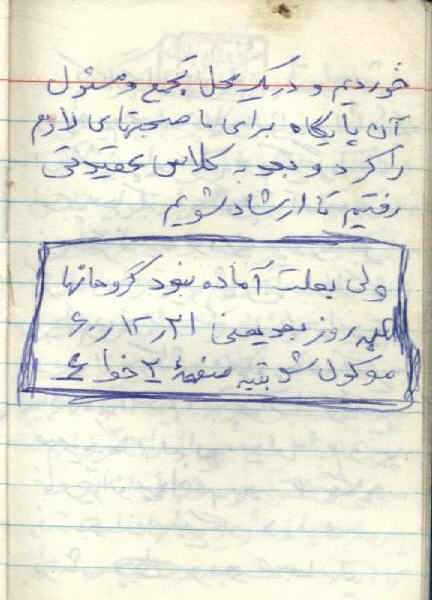 خوردیم و در یک محل تجمع و مسئول
آن پایگاه برای ما صحبتهای لازم
را کرد و بعد به کلاس عقیدتی
رفتیم تا ارشاد شویم
ولی بعلت آماده نبود گروهانها
به روز بعد یعنی ۶۰/۱۲/۲۱
موکول شد بقیه صفحهٔ ۲